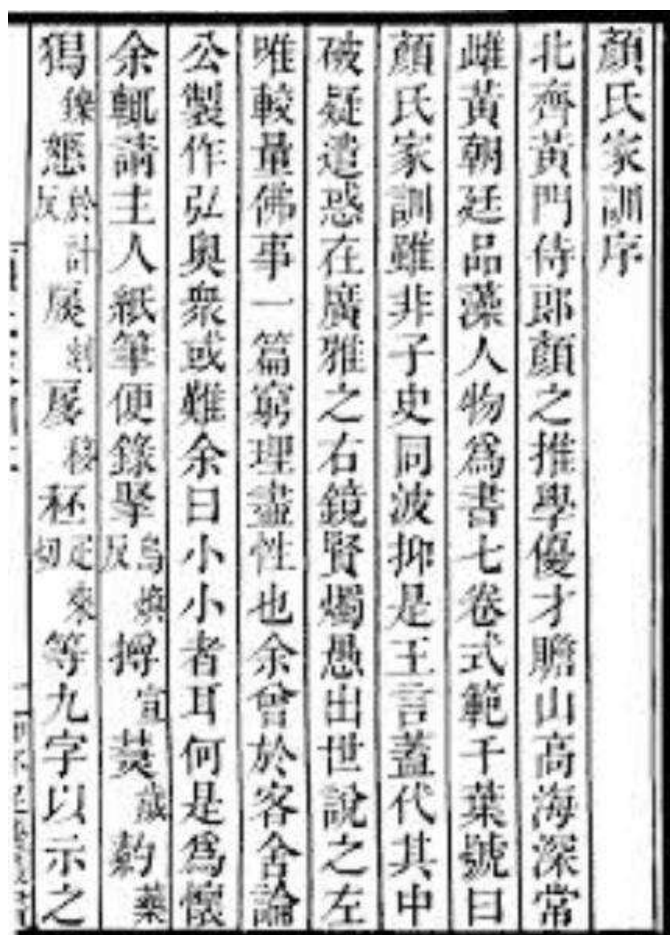 顏氏家訓序
北齊黃門侍郎顏之推學優才贍山高海深常
雌黃朝廷品藻人物為書七卷式範千葉號曰
顏氏家訓雖非子史同波抑是王言蓋代其中
破疑遣惑在廣雅之右鏡賢燭愚出世說之左
唯較量佛事一篇窮理盡性也余曾於客舍論
公製作弘奧眾或難余曰小小者耳何是為懷
余輒請主人紙筆便錄掔烏煥反㩋宣熒歲葯藥
獡鑠㦣於計反扊剡扅移秠疋來切等九字以示之